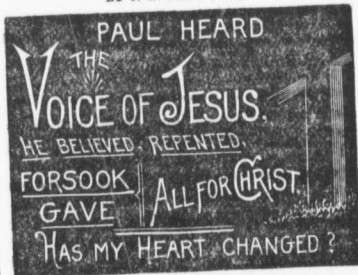 PAUL HEARD
THE
VOICE OF JESUS,
HE BELIEVED, REPENTED,
FORSOOK
GAVE
ALL FOR CHRIST.
HAS MY HEART CHANGED?